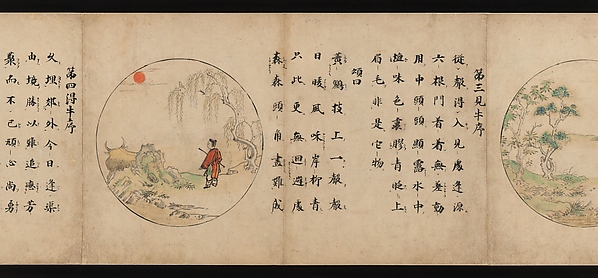 第三見牛序
從聲得入見處逢源
六根門著著無差動
用中頭頭顯露水中
塩味色裏膠青眨上
眉毛非是它物
頌曰
黃鸝枝上一聲聲
日暖風和岸柳青
只此更無回避處
森森頭角畫難成
第四得牛序
久埋郊外今日逢渠
由境勝以難追戀芳
叢而不已頑心尚勇